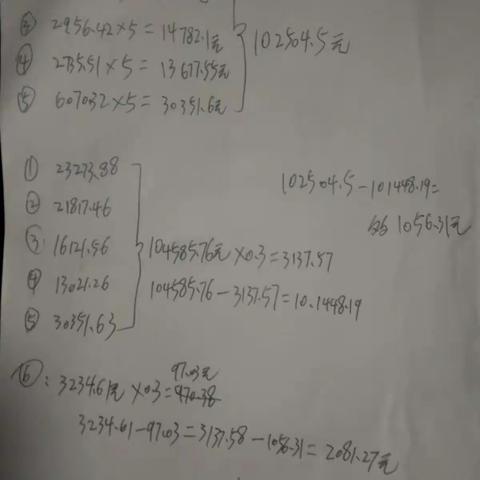 ③ 2956.42×5=14782.1元
④ 2735.51×5=13677.55元
⑤ 607032×5=30351.6元
102504.5元
① 23273.88
② 21817.46
③ 16121.56
④ 13021.26
⑤ 30351.63
104585.76元×0.3=3137.57
104585.76-3137.57=10.1448.19
102504.5-101448.19=
1056.31元
⑥: 3234.61元×0.3=970.38
97.03元
3234.61-97.03=3137.58-1056.31=2081.27元